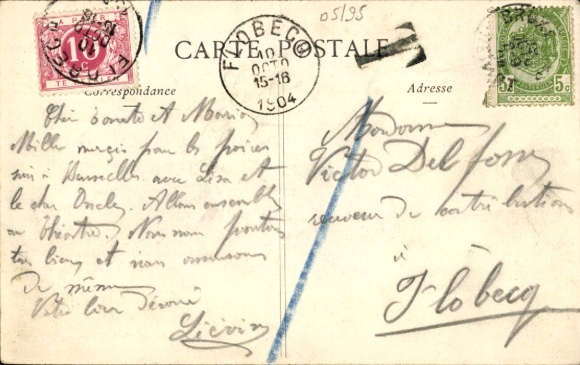 05/95
CARTE POSTALE
T
FLOBECQ
10
OCTO
15-16
1904
10
5 C
Correspondance
Adresse
Cher Tante et Maria
Mille merçis pour les poires
suis à Bruxelles avec Lisa et
le cher Oncle. Allons ensemble
au théâtre. Nous nous portons
très bien, et nous
de même
Votre tout dévoué
Liévin
Madame
Victor Delfosse
receveur de contributions
à
Flobecq